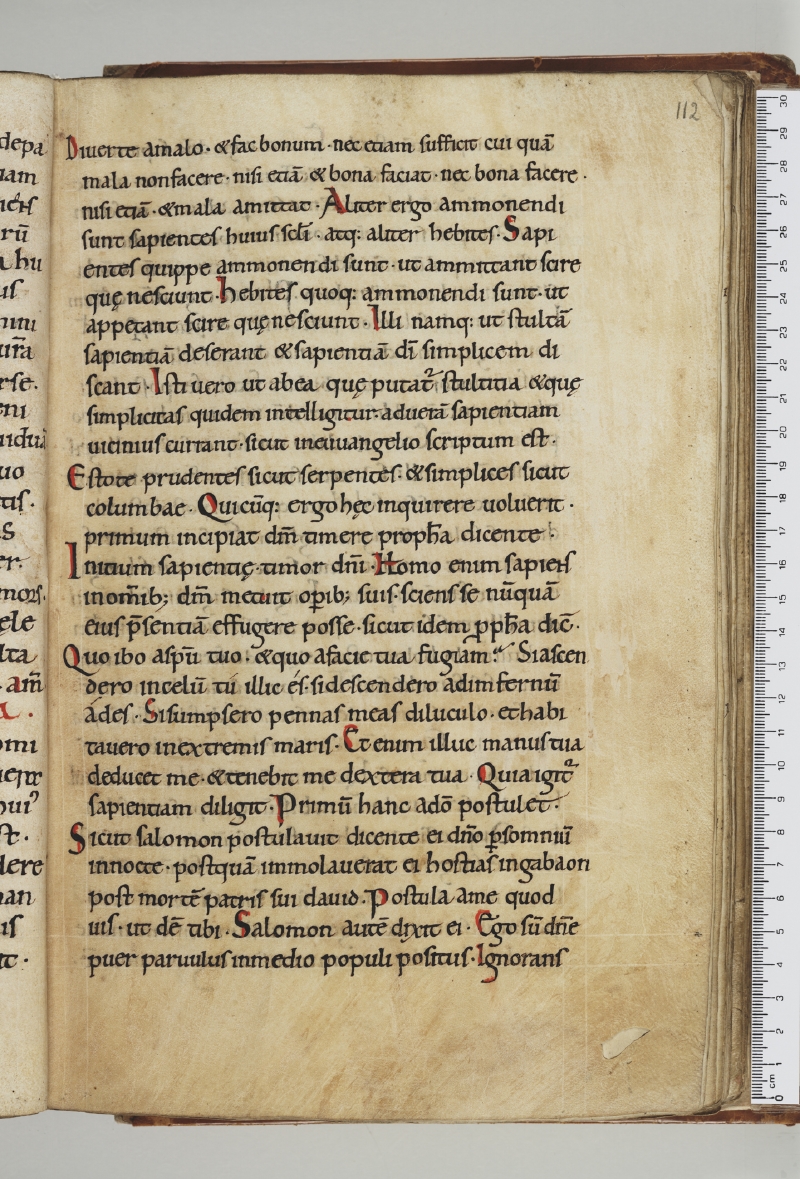 112
Diuerte amalo · &fac bonum · nec etiam sufficit cui quā
mala nonfacere · nisi etiā & bona faciat · nec bona facere ·
nisi etiā · &mala amittat · Aliter ergo ammonendi
sunt sapientes huius scl̄i · atq: aliter hebites · Sapi
entes quippe ammonendi sunt · ut ammittant scire
quę nesciunt · hebites quoq: ammonendi sunt · ut
appetant scire quę nesciunt · Illi namq: ut stultā
sapientiā deserant &sapientiā dī simplicem di
scant · Isti uero ut abea quę putat᷑ stultitia &quę
simplicitas quidem intelligitur aduerā sapientiam
uicinius currant · sicut ineuuangelio scriptum est ·
Estote prudentes sicut serpentes · &simplices sicut
columbae · Quicūq: ergo hęc inquirere uoluerit ·
primum incipiat dm̄ timere propħa dicente ·
Initium sapientię timor dnī · Homo enim sapiens
inom̄ib; dm̄ metuit opib; suis · sciens se nūquā
eius p̄sentiā effugere posse · sicut idem ppħa dic̄ ·
Quo ibo aspū tuo · &quo afacie tua fugiam? Siascen
dero incelū tu illic és · sidescendero adinfernū
ades · Sisumpsero pennas meas diluculo · ethabi
tauero inextremis maris · Etenim illuc manus tua
deducet me · &tenebit me dextera tua · Quia igit᷑
sapientiam diligit · Primū hanc adō postulet ·
Sicut salomon postulauit dicente ei dn̄o p̱somniū
innocte · postquā immolauerat ei hostias ingabaon
post mortē patris sui dauid · Postula ame quod
uis · ut dē tibi · Salomon autē dixit ei · Ego sū dn̄e
puer paruulus inmedio populi positus · Ignorans